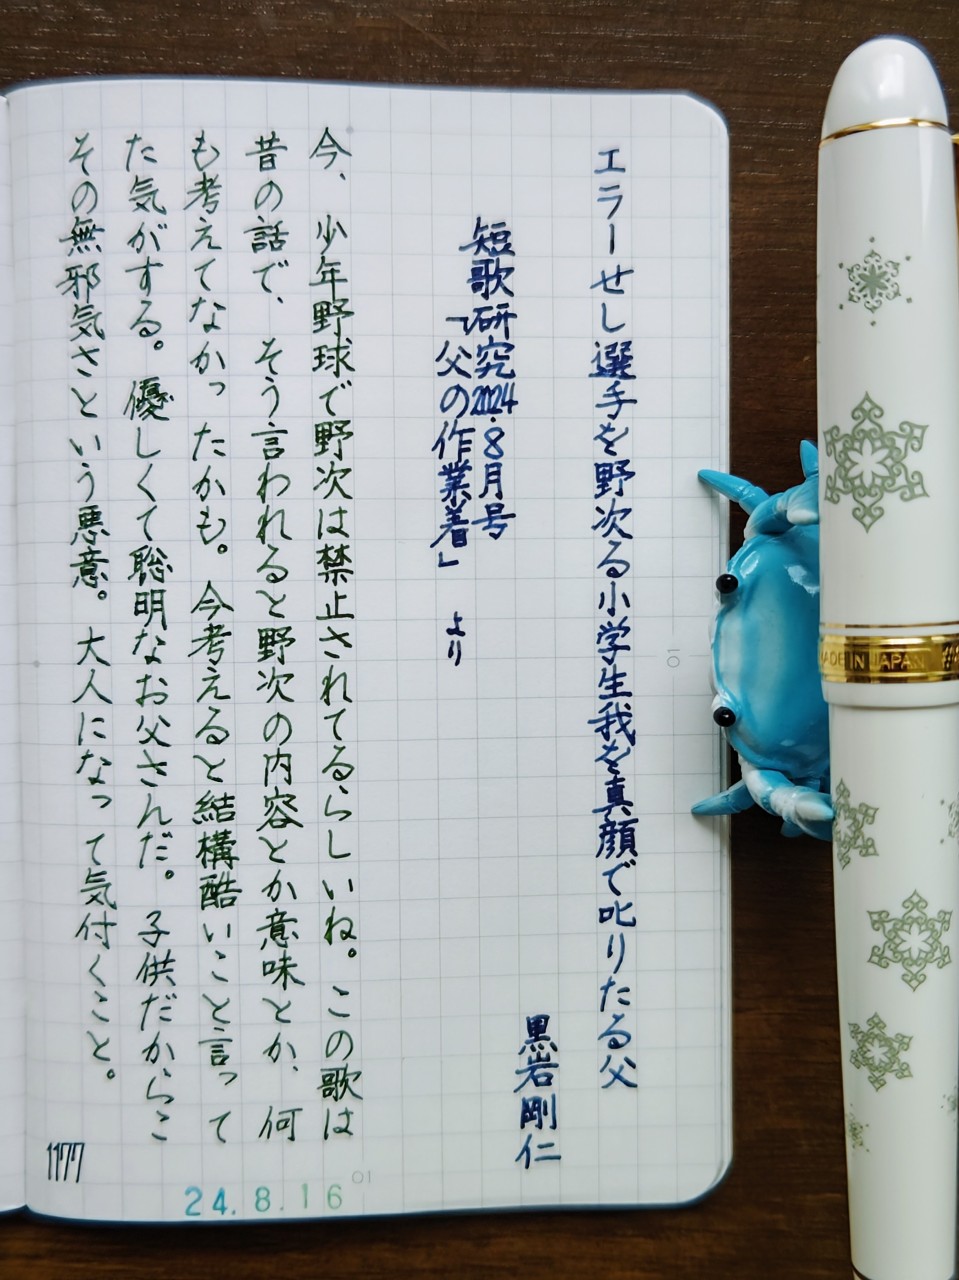 エラーせし選手を野次る小学生我を真顔で叱りたる父
黒岩剛仁
短歌研究2024.8月号
「父の作業着」より
今、少年野球で野次は禁止されてるらしいね。この歌は
昔の話で、そう言われると野次の内容とか意味とか、何
も考えてなかったかも。今考えると結構酷いこと言って
た気がする。優しくて聡明なお父さんだ。子供だからこ
その無邪気さという悪意。大人になって気付くこと。
1177
24.8.16
01
10
MADE IN JAPAN